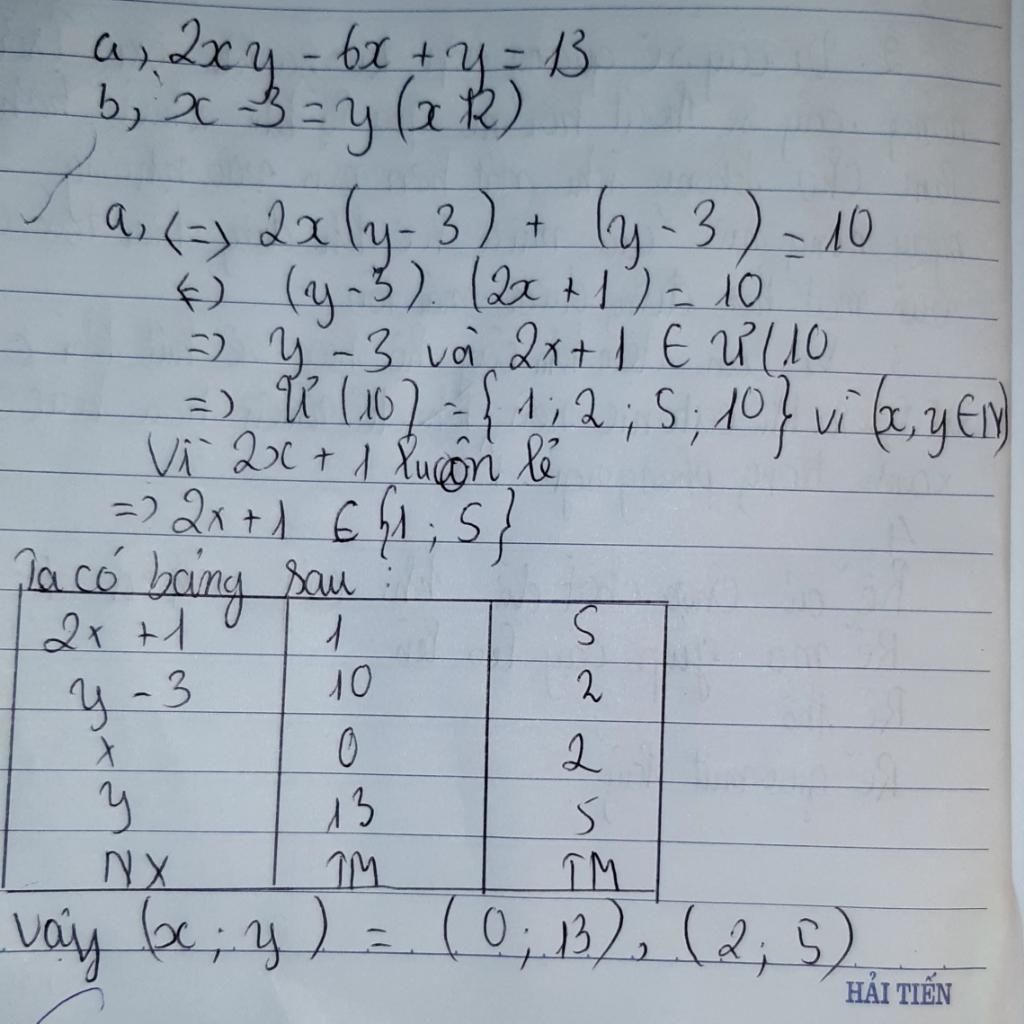 a, 2xy - 6x + y = 13
b, x - 3 = y (x + 2)
a, <=> 2x (y - 3) + (y - 3) = 10
<=> (y - 3) . (2x + 1) = 10
=> y - 3 và 2x + 1 ∈ Ư(10
=> Ư (10) = {1; 2; 5; 10} vì (x, y ∈ N)
Vì 2x + 1 luôn lẻ
=> 2x + 1 ∈ {1; 5}
Ta có bảng sau :
2x + 1 1 5
y - 3 10 2
x 0 2
y 13 5
NX TM TM
vậy (x; y) = (0; 13), (2; 5)
HẢI TIẾN